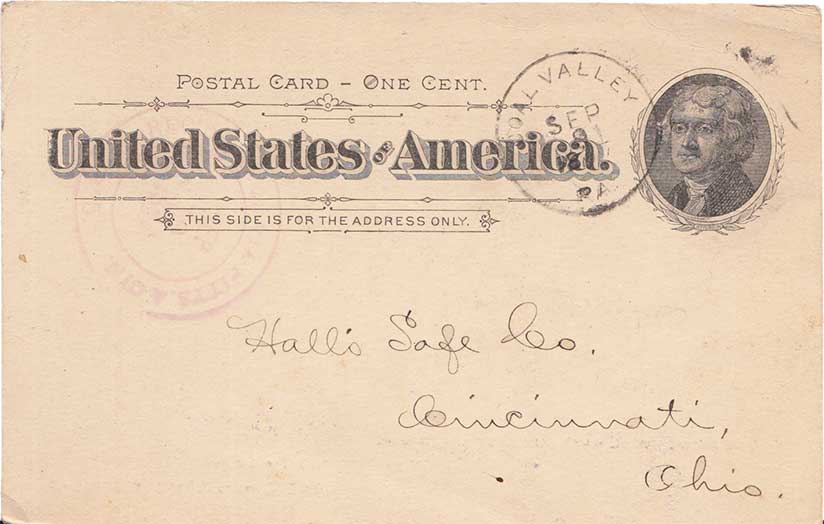 POSTAL CARD – ONE CENT.
United States of America.
THIS SIDE IS FOR THE ADDRESS ONLY.
VALLEY
SEP
PA.
Hall's Safe Co.
Cincinnati,
Ohio.